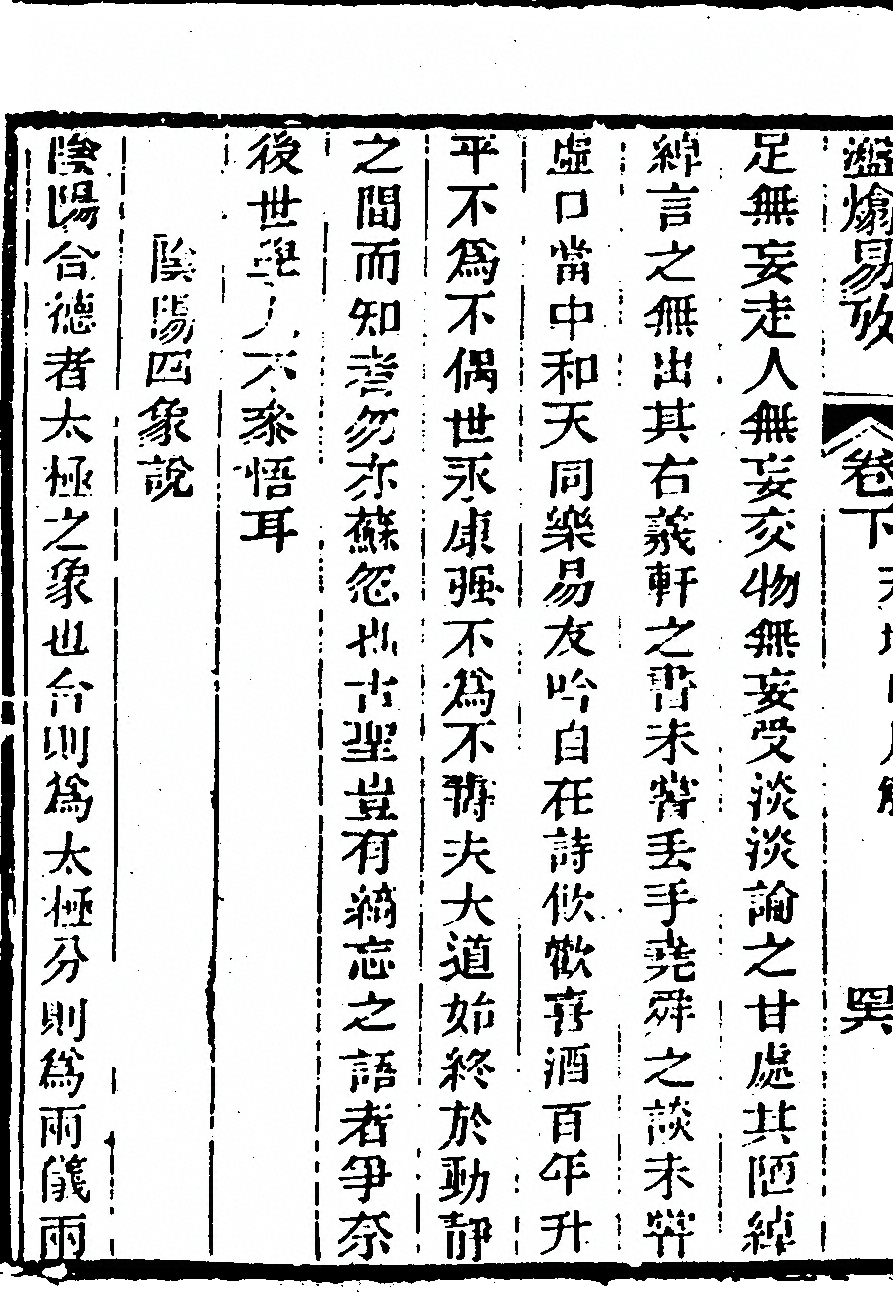 易攷 卷下
足無妄走人無妄交物無妄受淡淡論之甘處其陋綽
綽言之無出其右羲軒之書未嘗丢手堯舜之談未嘗
虛口當中和天同樂易友吟自在詩飲歡喜酒百年升
平不爲不偶世永康强不爲不壽夫大道始終於動靜
之間而知者勿亦蘇忽也古聖豈有𦂶忘之語者爭奈
後世與人不參悟耳
陰陽四象說
陰陽合德者太極之象也合則爲太極分則爲兩儀兩